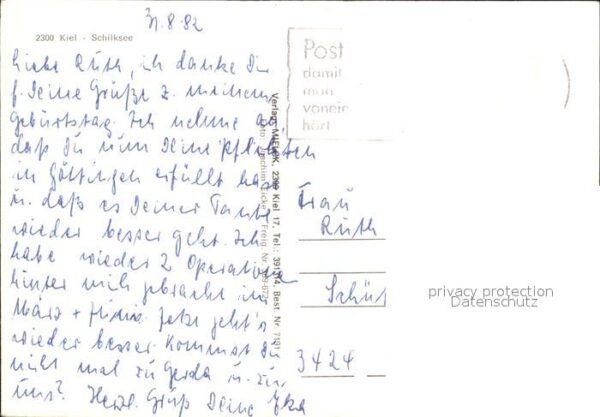 31.8.82
2300 Kiel - Schilksee
Liebe Ruth, ich danke Dir
f. Deine Grüße z. meinem
Geburtstag. Ich nehme an,
daß Du nun Deine Pflichten
in Göttingen erfüllt hast
u. daß es Deiner Tante
wieder besser geht. Ich
habe wieder 2 Operationen
hinter mich gebracht im
März + Juni. Jetzt geht's
wieder besser. Kommst Du
nicht mal zu Gerda u. zu
uns? Herzl. Gruß Deine
Verlag 2300 Kiel 17, Tel.: Best. Nr. 7191
Post
damit
man
vonein
hört
Frau
Ruth
Schüt
3424
privacy protection
Datenschutz